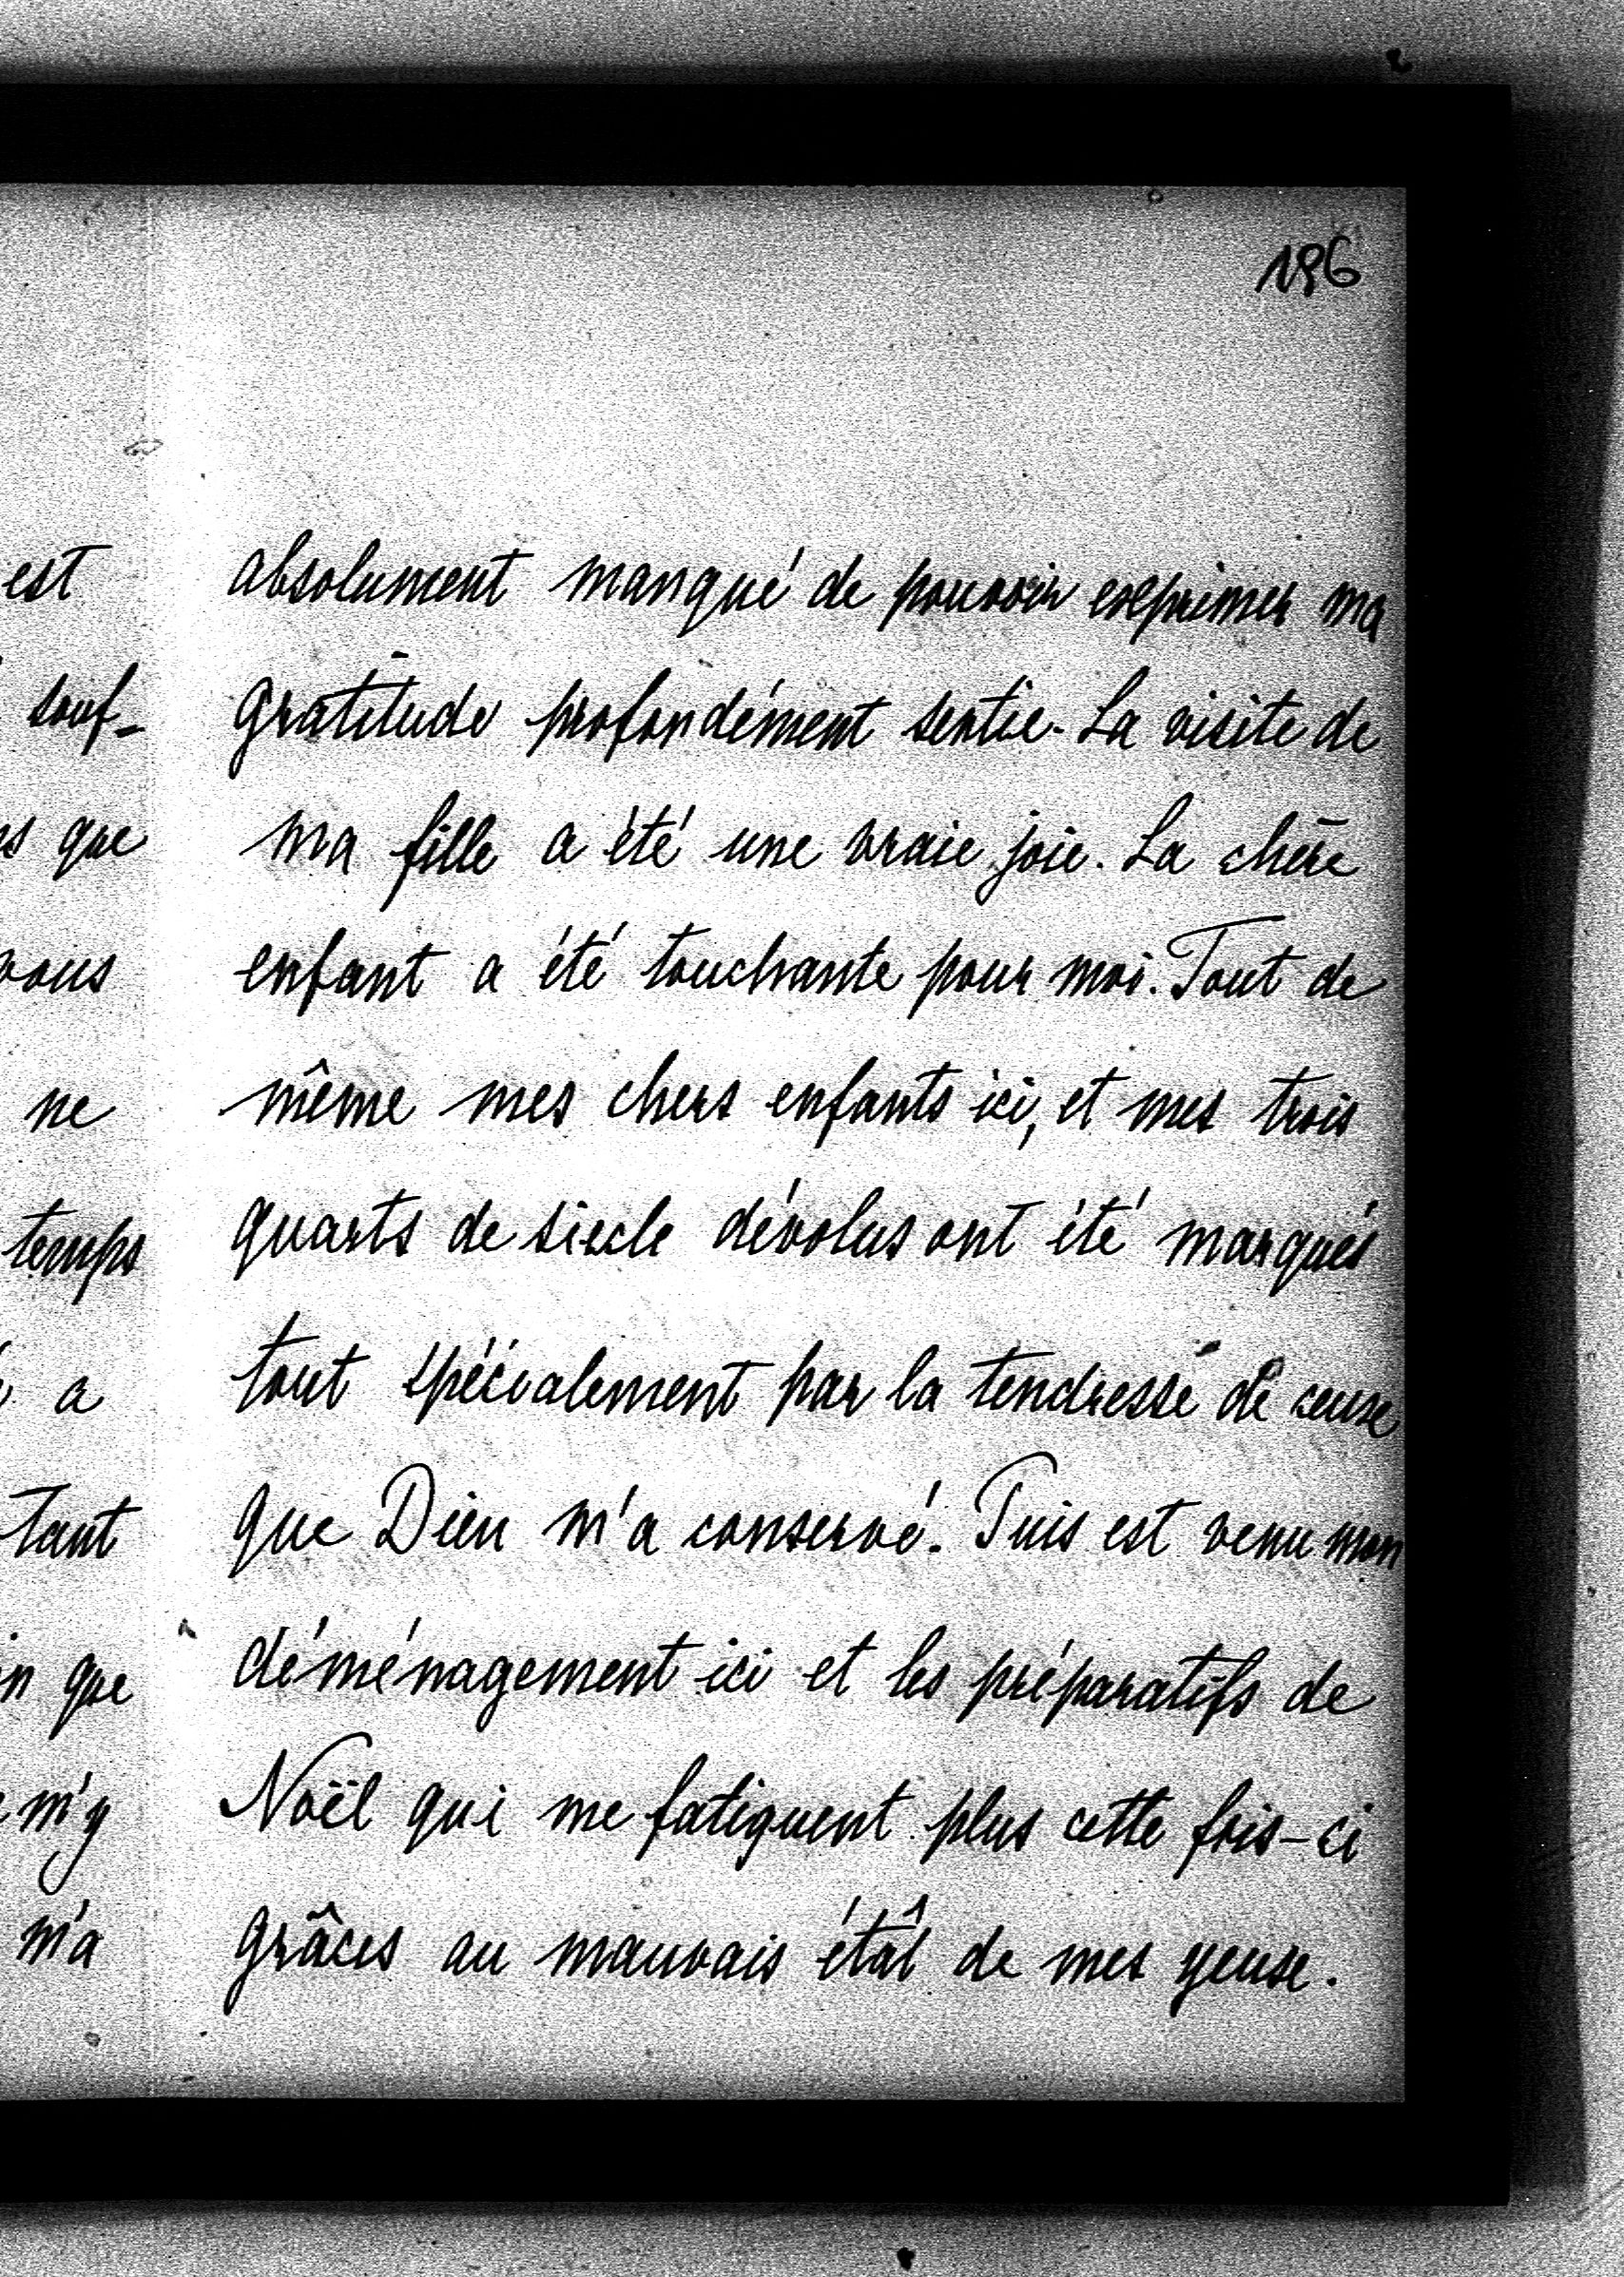 196
est
souf-
que
vous
ne
temps
a
tant
que
m'y
m'a
absolument manqué de pouvoir exprimer ma
gratitude profondément sentie. La visite de
ma fille a été une vraie joie. La chère
enfant a été touchante pour moi. Tout de
même mes chers enfants ici, et mes trois
quarts de siecle dévolus ont été marqués
tout spécialement par la tendresse de ceux
que Dieu m'a conservé. Puis est venu mon
déménagement ici et les préparatifs de
Noël qui me fatiguent plus cette fois-ci
grâces au mauvais étât de mes yeux.